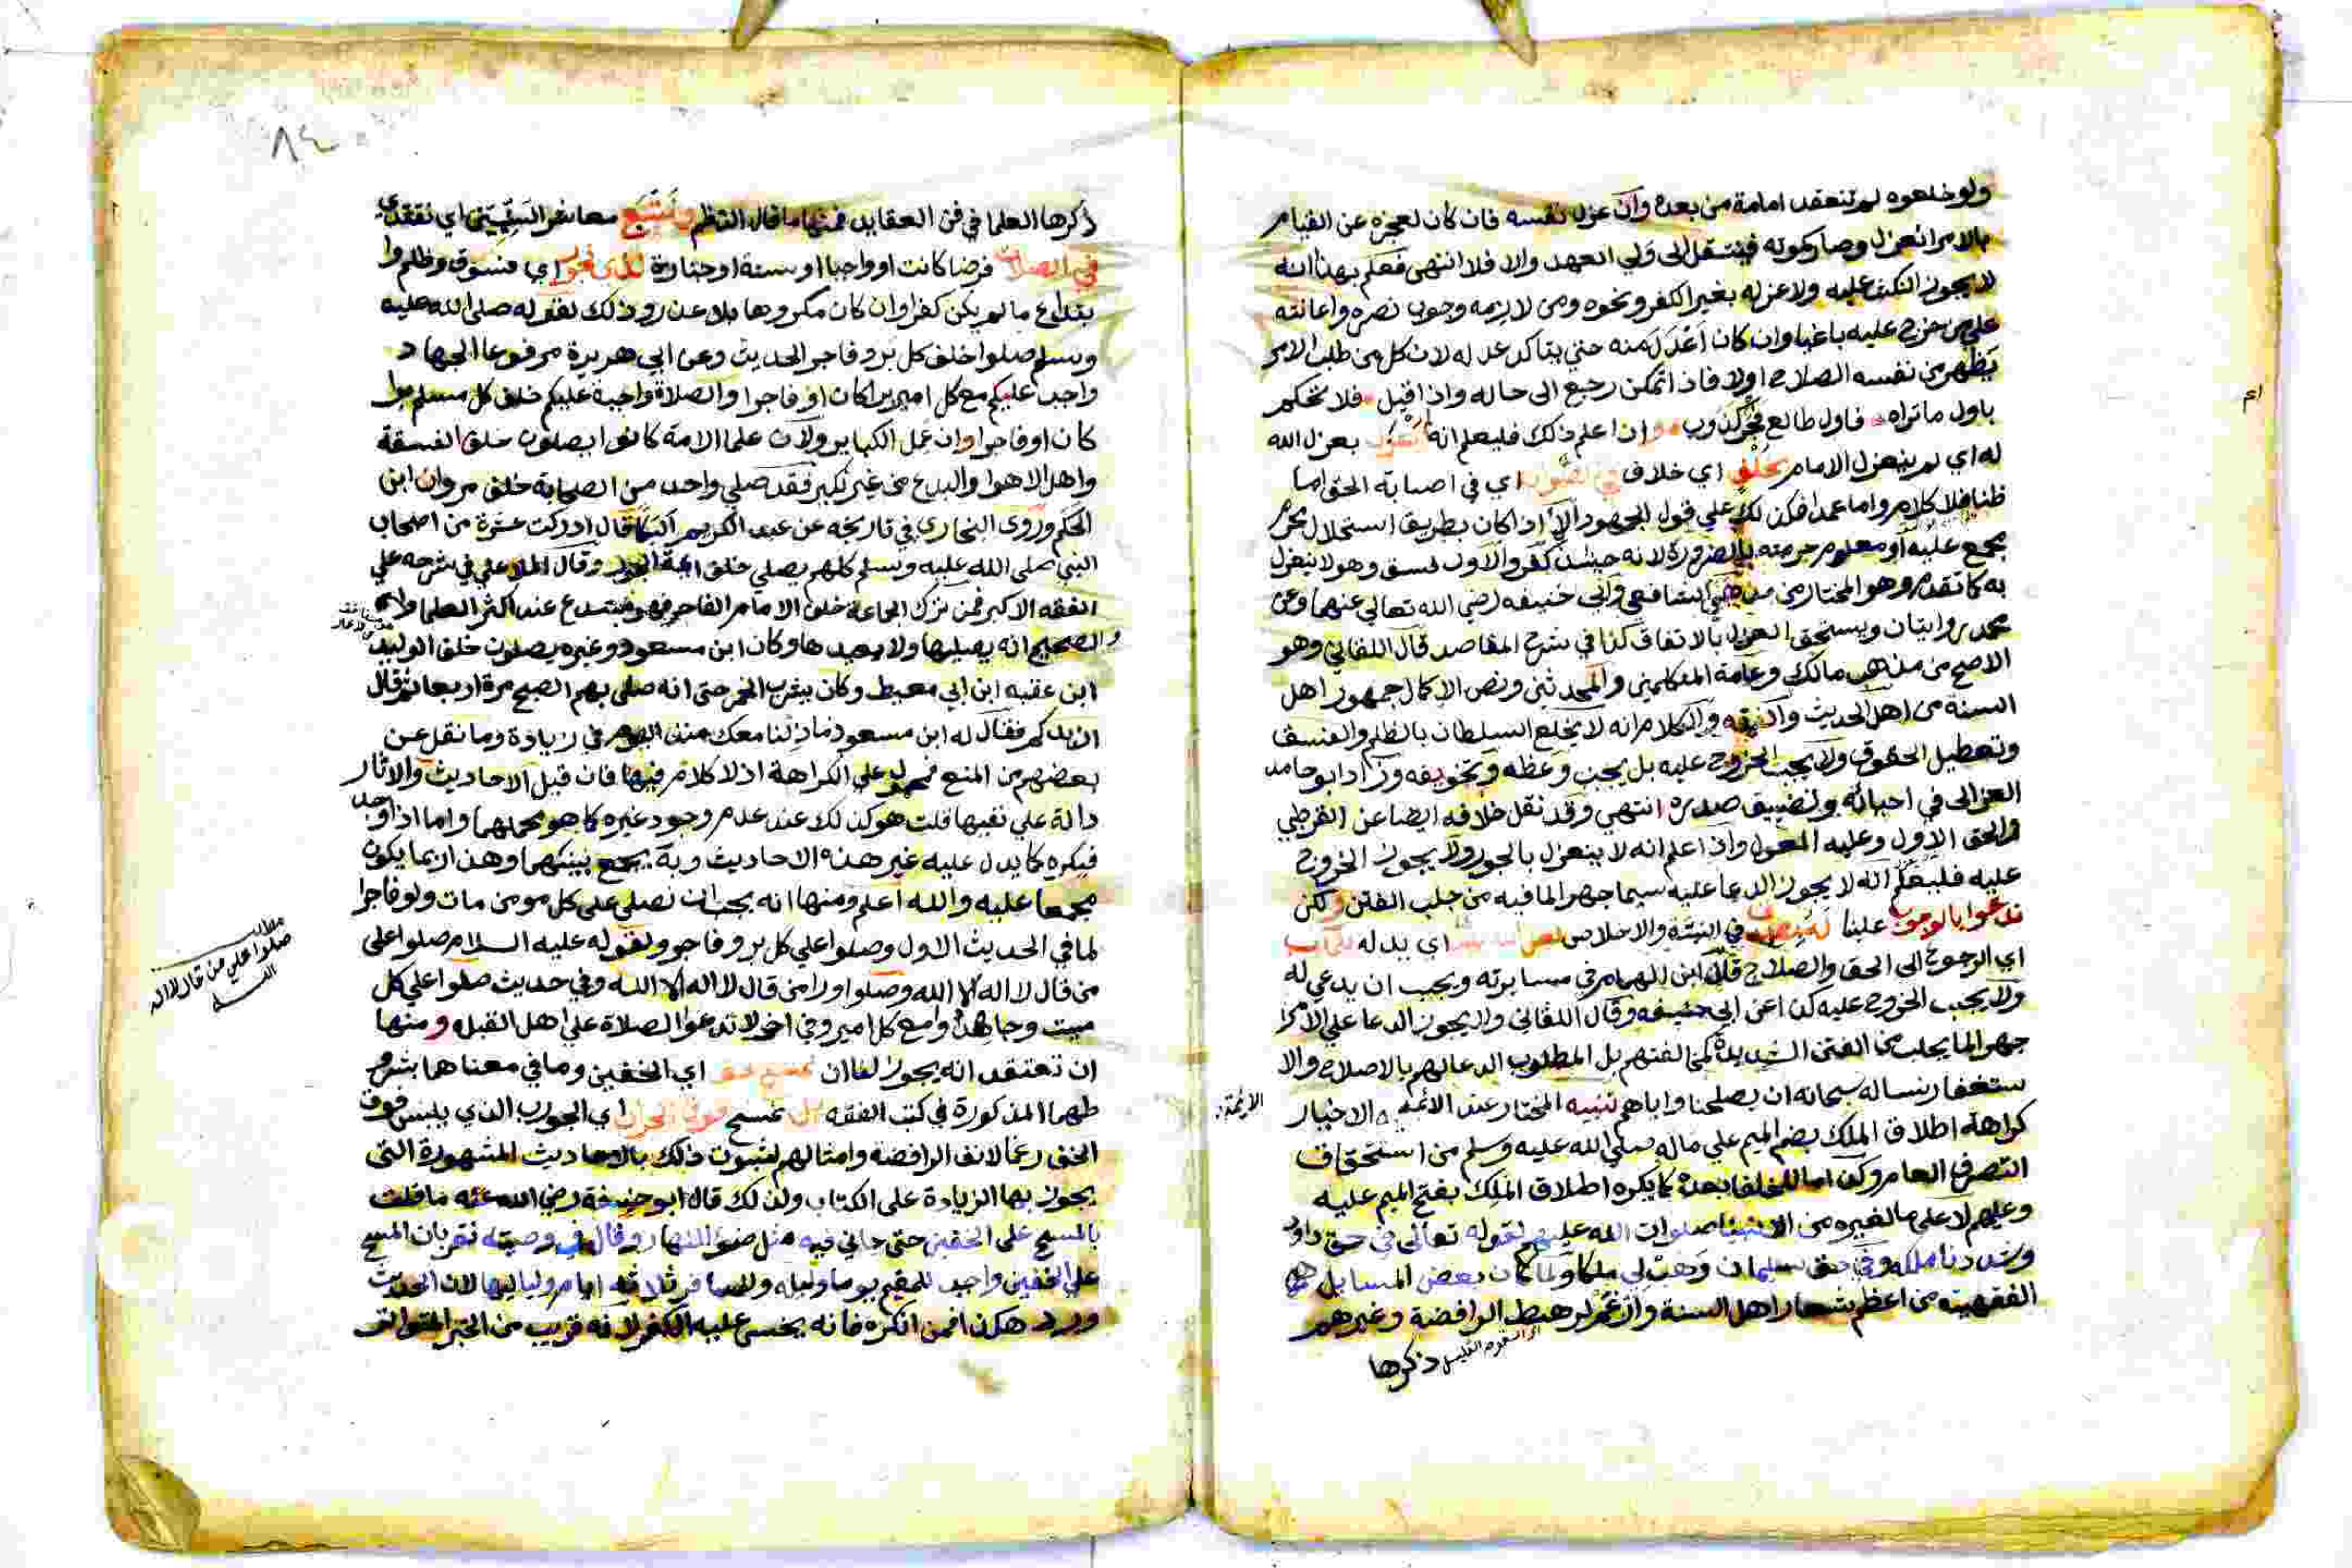 ولو خلعوه لم تنعقد امامة من بعده وان عزل نفسه فان كان لعجزه عن القيام
بالامر انعزل وصار كموته فينتقل الى ولي العهد والا فلا انتهى فعلم بهذا انه
لا يجوز النكث عليه ولا عزله بغير الكفر ونحوه ومن لازمه وجوب نصره واعانته
على من خرج عليه باغيا وان كان اعدل منه حتي يتاكد عدله لان كل من طلب الامر
يظهر من نفسه الصلاح اولا فاذا تمكن رجع الى حاله واذا قيل فلا تحكم
باول ما تراه فاول طالع فجر كذوب وان اعلم ذلك فليعلم انه بعزل الله
له اي لم ينعزل الامام بخلف اي خلاف في اي في اصابة الحق اما
ظنا فلا كلام واما عمدا فكذلك علي قول الجمهور الا اذا كان بطريق استحلال محرم
مجمع عليه او معلوم حرمته بالضرورة لانه حينئذ كفر والاول فسق وهو لا ينعزل
به كما تقدم وهو المختار من مذهبي الشافعي وابي حنيفه رضي الله تعالي عنهما وعن
محمد روايتان ويستحق العزل بالاتفاق كذا في شرح المقاصد قال اللقاني وهو
الاصح من مذهب مالك وعامة المتكلمين والمحدثين ونص الاكمال جمهور اهل
السنة من اهل الحديث والفقه والكلام انه لا يخلع السلطان بالظلم والفسق
وتعطيل الحقوق ولا يجب الخروج عليه بل يجب وعظه وتخويفه وزاد ابو حامد
الغزالى في احيائه وتضييق صدره انتهي وقد نقل خلافه ايضا عن القرطبي
والحق الاول وعليه المعول واذا علم انه لا ينعزل بالجور ولا يجوز الخروج
عليه فليعلم انه لا يجوز الدعا عليه سيما جهرا لما فيه من جلب الفتن ولكن
ندعوا بالوجوب علينا في النية والاخلاص اي يدله
اي الرجوع الى الحق والصلاح قال ابن الهمام في مسايرته ويجب ان يدعي له
ولا يجب الخروج عليه كذا عن ابي حنيفه وقال اللقاني ولا يجوز الدعا علي الامرا
جهرا لما يجلب من الفتن الشديدة كمخالفتهم بل المطلوب الدعا لهم بالاصلاح والا
ستغفار نساله سبحانه ان يصلحنا واياهم تنبيه المختار عند الائمة الاخيار
الائمة
كراهة اطلاق الملك بضم الميم علي ماله صلي الله عليه وسلم من استحقاق
التصرف العام وكذا ما للخلفا بعده كما يكره اطلاق الملك بفتح الميم عليه
وعليهم لا على ما لغيره من الانبيا صلوات الله عليهم لقوله تعالى في حق داود
وشددنا ملكه وفي حق سليمان وهب لي ملكا ولما كان بعض المسايل
الفقهية من اعظم شعار اهل السنة وارغم لرهط الرافضة وغيرهم
ذكرها
٨٤
ذكرها العلما في فن العقايد فمنها ما قال الناظم ونتبع معاشر السنيين اي نقتدي
في الصلاة فرضا كانت او واجبا او سنة او جنازة لذي فجور اي فسوق وظلم وا
بتداع ما لم يكن كفرا وان كان مكروها بلا عذر وذلك لقوله صلى الله عليه
وسلم صلوا خلف كل بر وفاجر الحديث وعن ابي هريرة مرفوعا الجهاد
واجب عليكم مع كل امير برا كان او فاجرا والصلاة واجبة عليكم خلف كل مسلم برا
كان او فاجرا وان عمل الكباير ولان علما الامة كانوا يصلون خلف الفسقة
واهل الاهوا والبدع من غير نكير فقد صلي واحد من الصحابة خلف مروان ابن
الحكم وروى البخاري في تاريخه عن عبد الكريم البكا قال ادركت عشرة من اصحاب
النبي صلى الله عليه وسلم كلهم يصلي خلف ائمة الجور وقال الملا علي في شرحه علي
الفقه الاكبر فمن ترك الجماعة خلف الامام الفاجر فهو مبتدع عند اكثر العلما
والصحيح انه يصليها ولا يعيدها وكان ابن مسعود وغيره يصلون خلف الوليد
ابن عقبه ابن ابي معيط وكان يشرب الخمر حتى انه صلى بهم الصبح مرة اربعا ثم قال
ازيدكم فقال له ابن مسعود ما زلنا معك منذ اليوم في زيادة وما نقل عن
بعضهم من المنع فمحمول علي الكراهة اذ لا كلام فيها فان قيل الاحاديث والاثار
دالة علي نفيها قلت هو كذلك عند عدم وجود غيره كما هو محملهما واما اذا وجد
فيكره كما يدل عليه غير هذه الاحاديث وبه يجمع بينهما وهذا ربما يكون
مجمعا عليه والله اعلم ومنها انه يجب ان نصلي على كل مومن مات ولو فاجرا
لما في الحديث الاول وصلوا علي كل بر وفاجر ولقوله عليه السلام صلوا على
من قال لا اله الا الله وصلوا ورا من قال لا اله الا الله وفي حديث صلوا علي كل
ميت وجاهدوا مع كل امير وفي اخر لا تدعوا الصلاة علي اهل القبله ومنها
ان تعتقد انه يجوز لنا ان اي الخفين وما في معناها بشرو
طهما المذكورة في كتب الفقه نمسح اي الجورب الذي يلبس فوق
الخف رغما لانف الرافضة وامثالهم لثبوت ذلك بالاحاديث المشهورة التي
يجوز بها الزيادة على الكتاب ولذلك قال ابو حنيفة رضي الله عنه ما قلت
بالمسح على الخفين حتى جاني فيه مثل ضوء النهار وقال في وصيته نقر بان المسح
علي الخفين واجب للمقيم يوما وليله وللمسافر ثلاثة ايام ولياليها لان الحديث
ورد هكذا فمن انكره فانه يخشى عليه الكفر لانه قريب من الخبر المتواتر
مطلب
صلوا علي من قال لا اله
الا الله